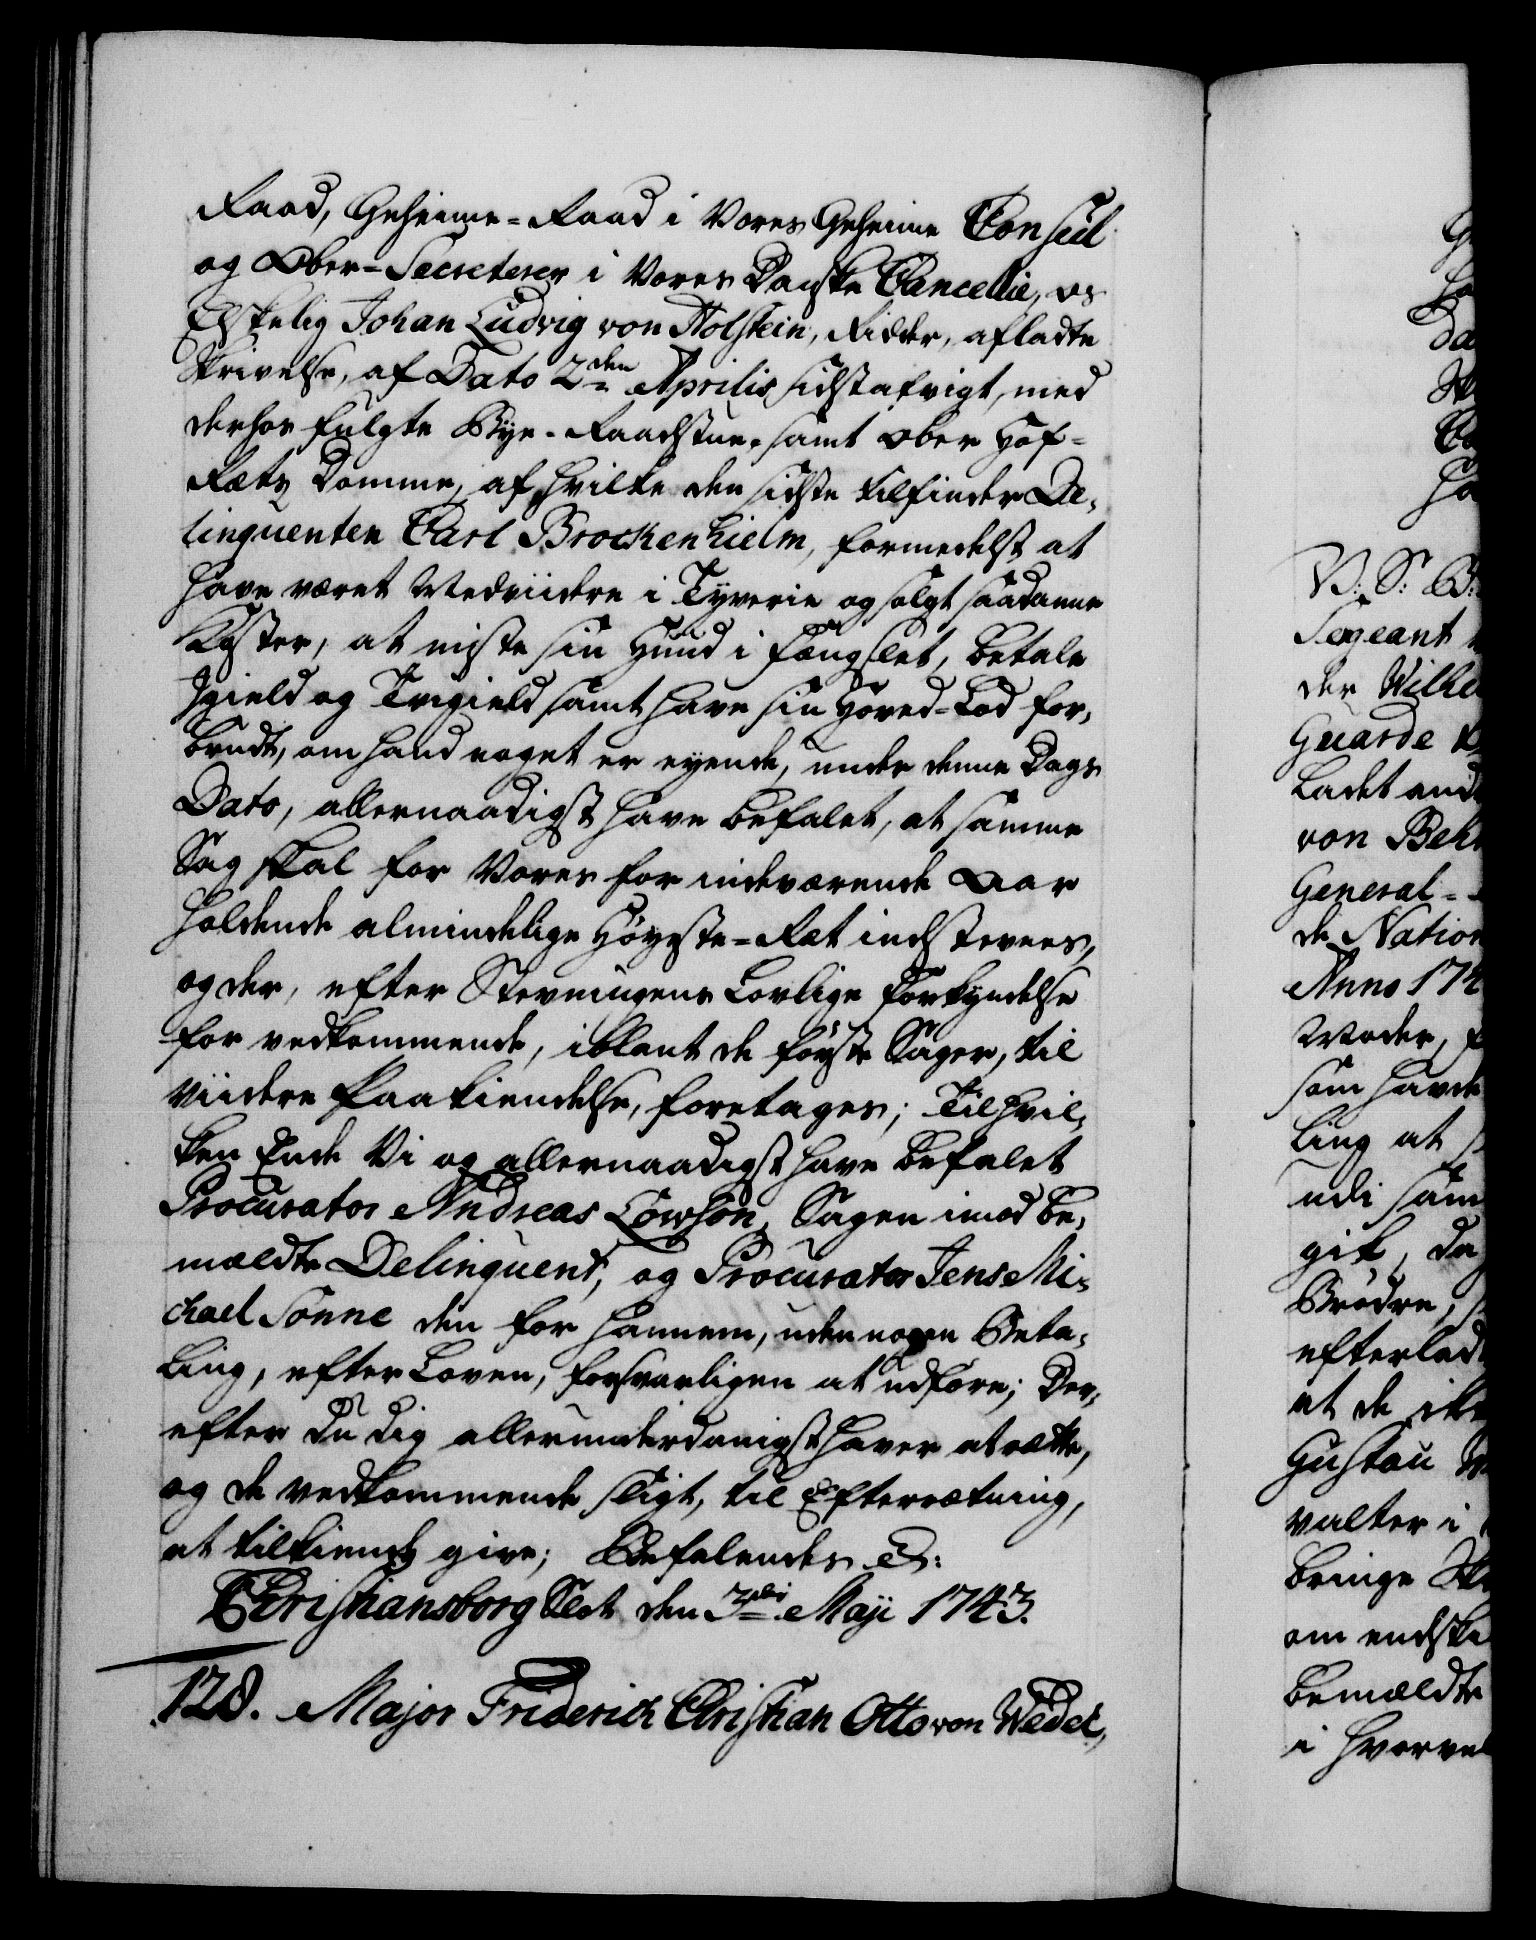 Raad, Geheime-Raad i Vores Geheime Conseil
og Ober-Secreterer i Vores Danske Cancellie, os
Elskelig Johan Ludvig von Holstein, Ridder, afladte
Skrivelse, af Dato 2den Aprilis sidstafvigt, med
derhos fulgte Bye- Raadstue- samt Ober Hof-
Rætz Domme, af hvilke den sidste tilfinder De-
linquenten Carl Brockenhielm, formedelst at
have været Medviidere i Tyverie og solgt saadanne
Koster, at miste sin Huud i Fængslet, betale
Igield og Tvigield samt have sin Hoved-Lod for-
brudt, om hand noget er eyende, under denne Dags
Dato, allernaadigst have befalet, at samme
Sag skal for Vores for indeværende Aar
holdende almindelige Høyeste-Ret indstevnes,
og der, efter Stevningens Lovlige Forkyndelse
for vedkommende, iblant de første Sager, til
viidere Paakiendelse, foretages; Til hvil-
ken Ende Vi og allernaadigst have befalet
Procurator Andreas Lowson, Sagen imod be-
mældte Delinquent, og Procurator Jens Mi-
chael Sonne den for hannem, uden nogen Beta-
ling, efter Loven, forsvarligen at udføre; Der-
efter du dig allerunderdanigst haver at rætte,
og de vedkommende sligt, til Efterrætning,
at tilkiende give; Befalendes &:
Christiansborg Slot den 3die Maji 1743.
128. Major Friderich Christian Otto von Wedel,
V: S: G:
Sergeant
der
Guarde
Ladet
von
General-
de
Anno 174
som havde
Ling at
udi
gik, da
Brødre,
at de
Gustav
valter i
bringe
om
bemældte
i